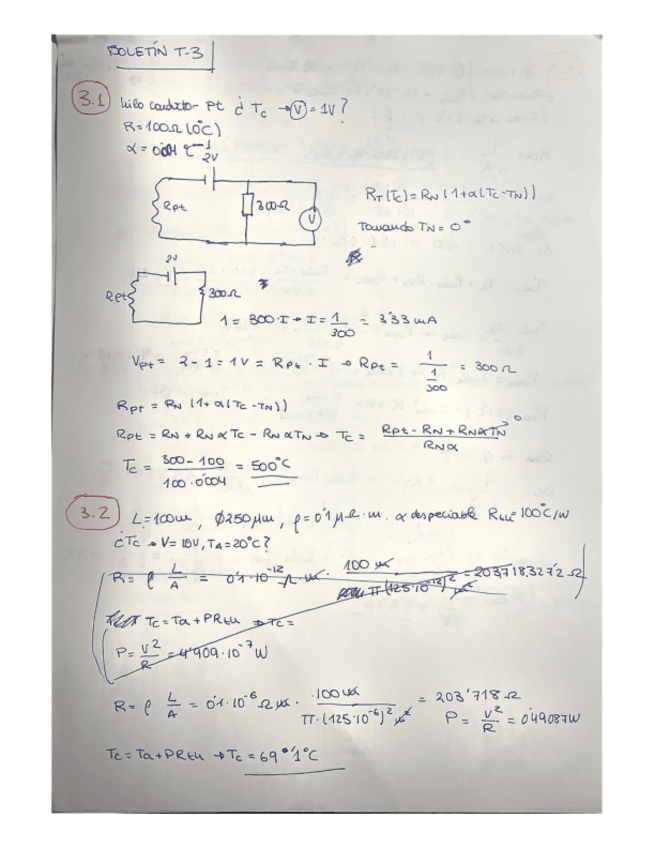 BOLETÍN T-3
3.1 hilo conductor Pt ¿ Tc → V = 1V?
R = 100Ω (0°C)
α = 0'004 °C⁻¹
2V
Rpt 300Ω V
RT(Tc) = RN(1+α(Tc-TN))
Tomando TN = 0°
2V
Rpt 300Ω
1 = 300·I → I = 1/300 = 3'33 mA
Vpt = 2 - 1 = 1V = Rpt · I → Rpt = 1/(1/300) = 300Ω
Rpt = RN (1+α(Tc-TN))
Rpt = RN + RNαTc - RNαTN → Tc = (Rpt - RN + RNαTN)/(RNα) 0
Tc = (300-100)/(100·0'004) = 500°C
3.2 L=100m, Ø250μm, ρ=0'1μΩ·m. α despeciable Rth=100°C/W
¿Tc → V=10V, TA=20°C?
R = ρ L/A = 0'1·10⁻¹² Ω·m · 100 m/(π(125·10⁻¹²)² m²) = 203718,3272 Ω
Tc = Ta + PRth → Tc =
P = V²/R = 4'909·10⁻⁷ W
R = ρ L/A = 0'1·10⁻⁶ Ω m · 100 m/(π·(125·10⁻⁶)² m²) = 203'718 Ω
P = V²/R = 0'49087W
Tc = Ta + PRth → Tc = 69'1°C